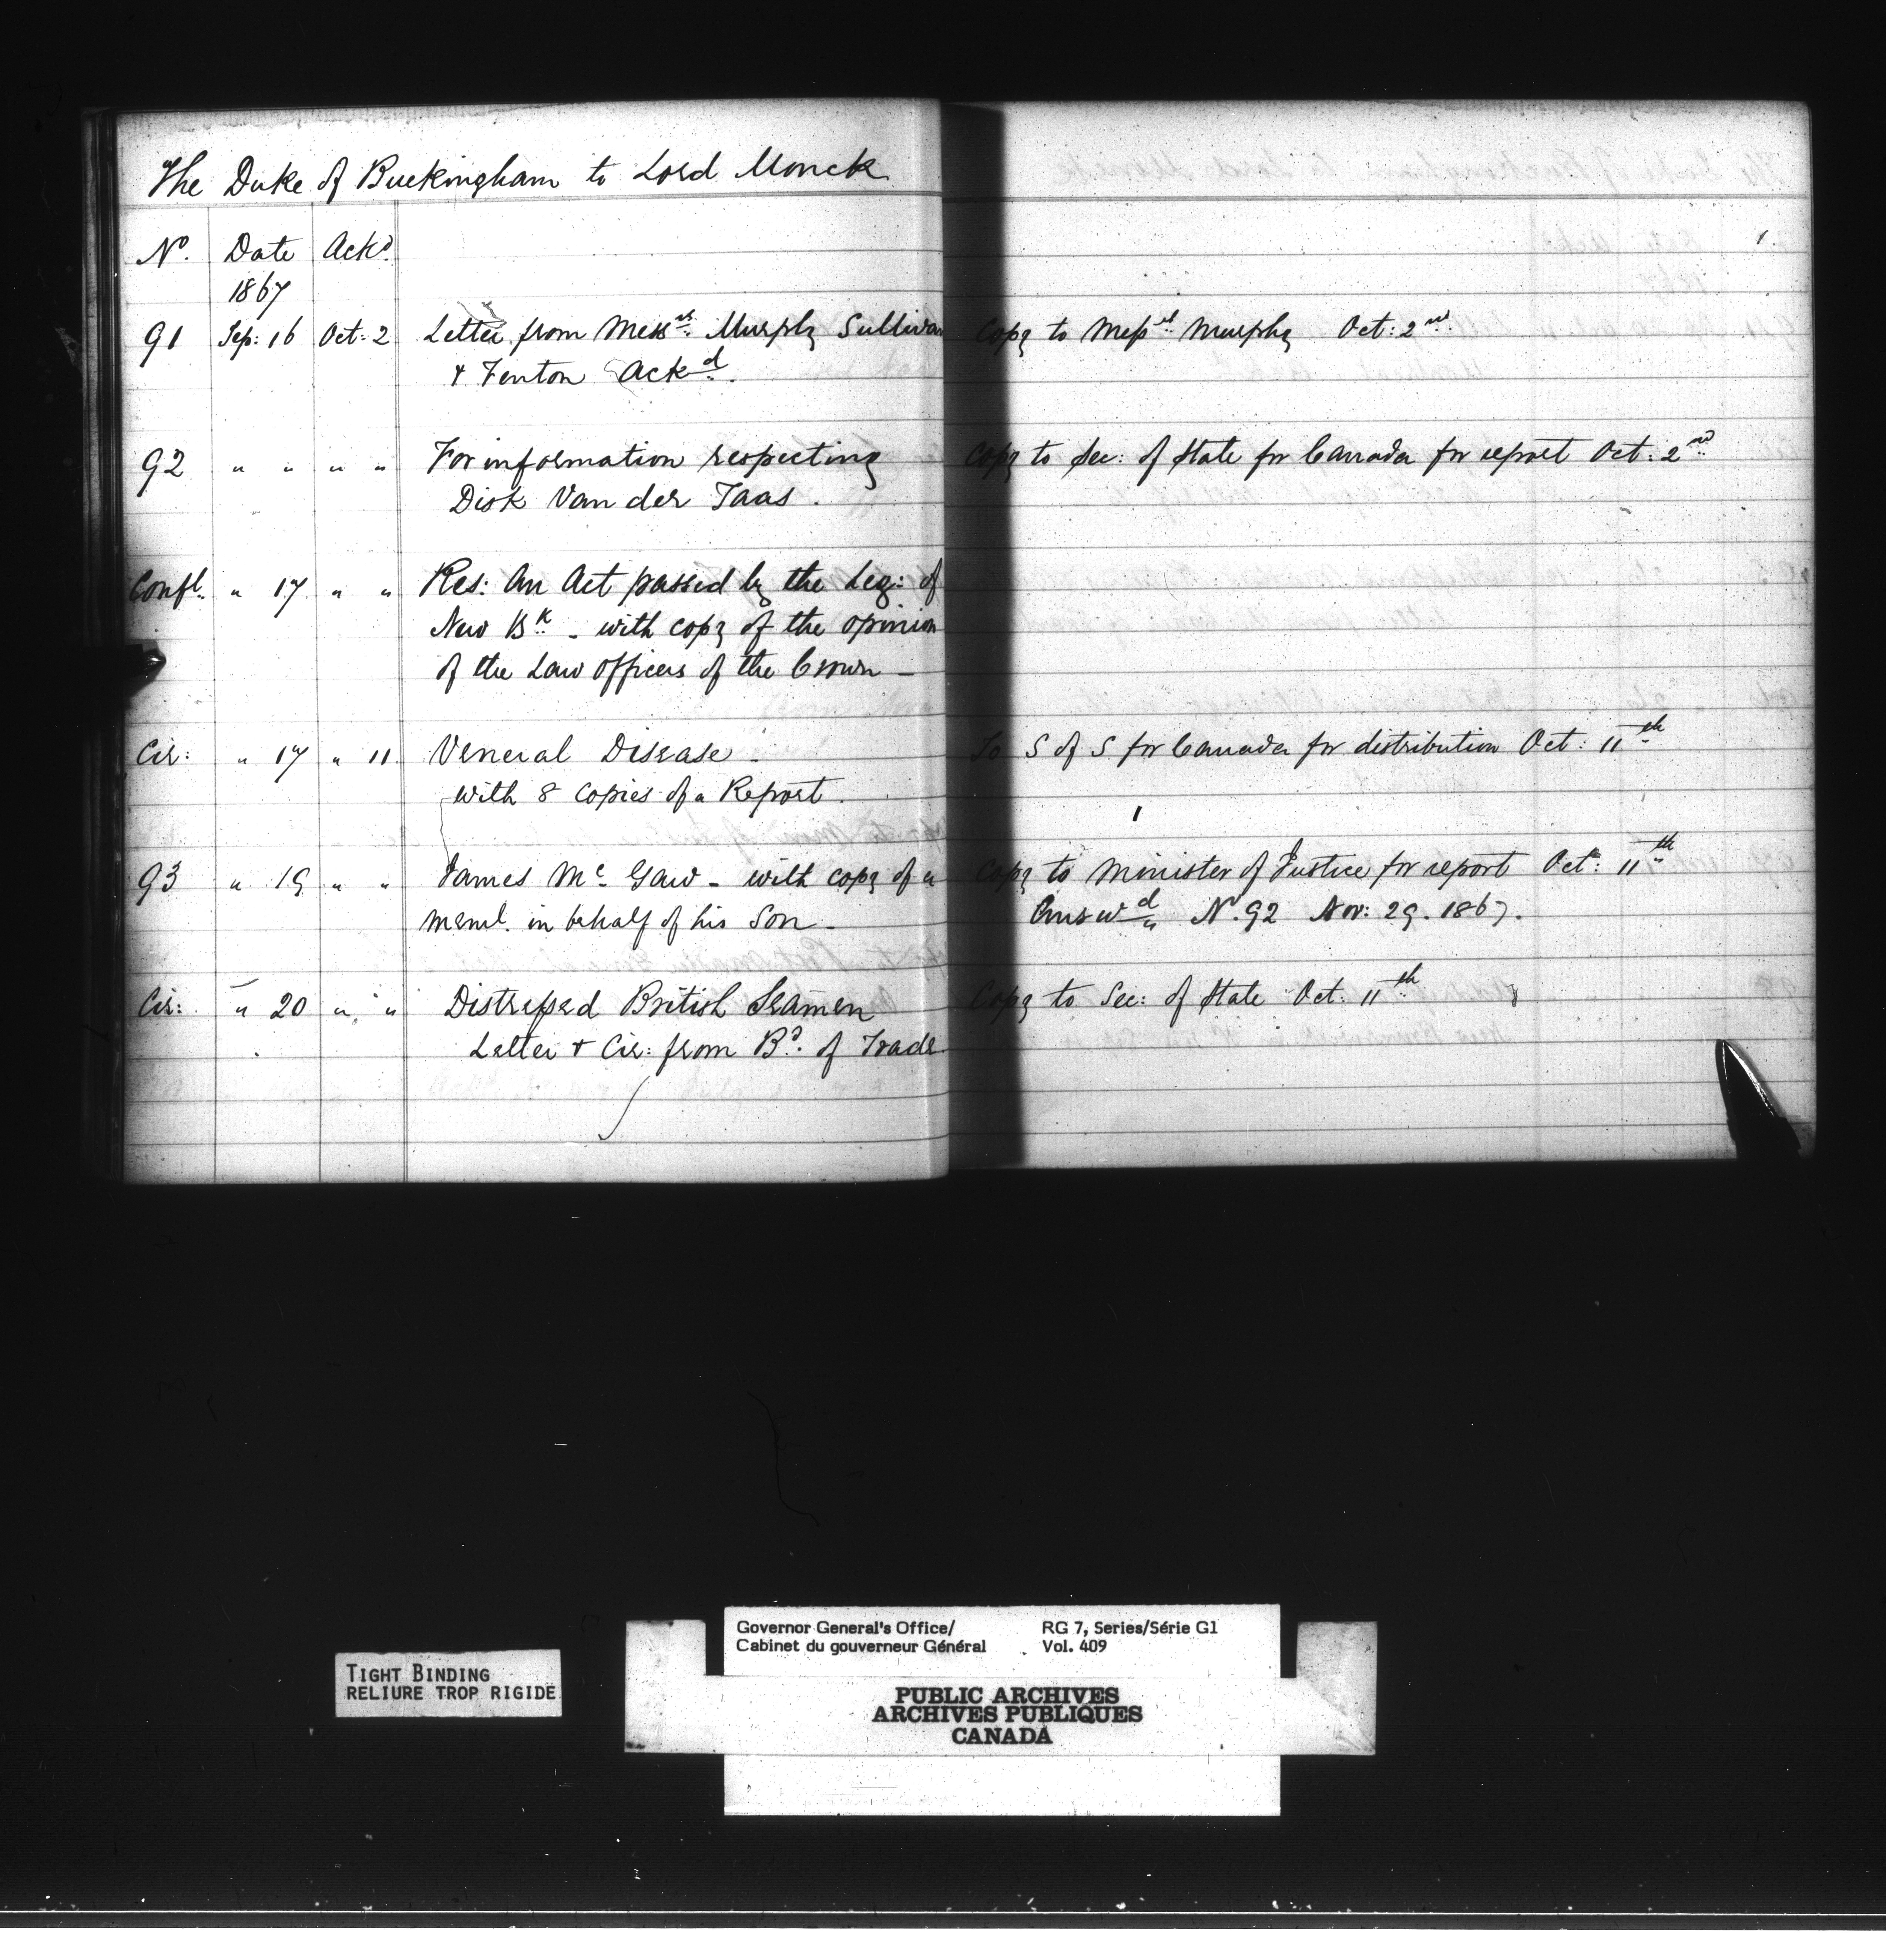 The Duke of Buckingham to Lord Monck
No. Date Ackd.
1867
91 Sep: 16 Oct: 2 Letter from Messrs. Murphy Sullivan Copy to Messrs. Murphy Oct: 2nd.
& Fenton Ackd.
92 " " " " For information respecting Copy to Sec: of State for Canada for report Oct: 2nd
Dirk Van der Taas.
Confl. " 17 " " Res: An Act passed by the Leg: of
New Bk. - with copy of the opinion
of the Law Officers of the Crown -
Cir: " 17 " 11 Veneral Disease - To S of S for Canada for distribution Oct: 11th
with 8 Copies of a Report.
93 " 19 " " James Mc Gaw - with copy of a Copy to Minister of Justice for report Oct: 11th
meml. in behalf of his Son - Answd. No. 92 Nov: 29. 1867.
Cir: " 20 " " Distressed British Seamen Copy to Sec: of State Oct. 11th
Letter & Cir: from Bd. of Trade
Governor General's Office/ RG 7, Series/Série G1
Cabinet du gouverneur Général Vol. 409
TIGHT BINDING
RELIURE TROP RIGIDE
PUBLIC ARCHIVES
ARCHIVES PUBLIQUES
CANADA